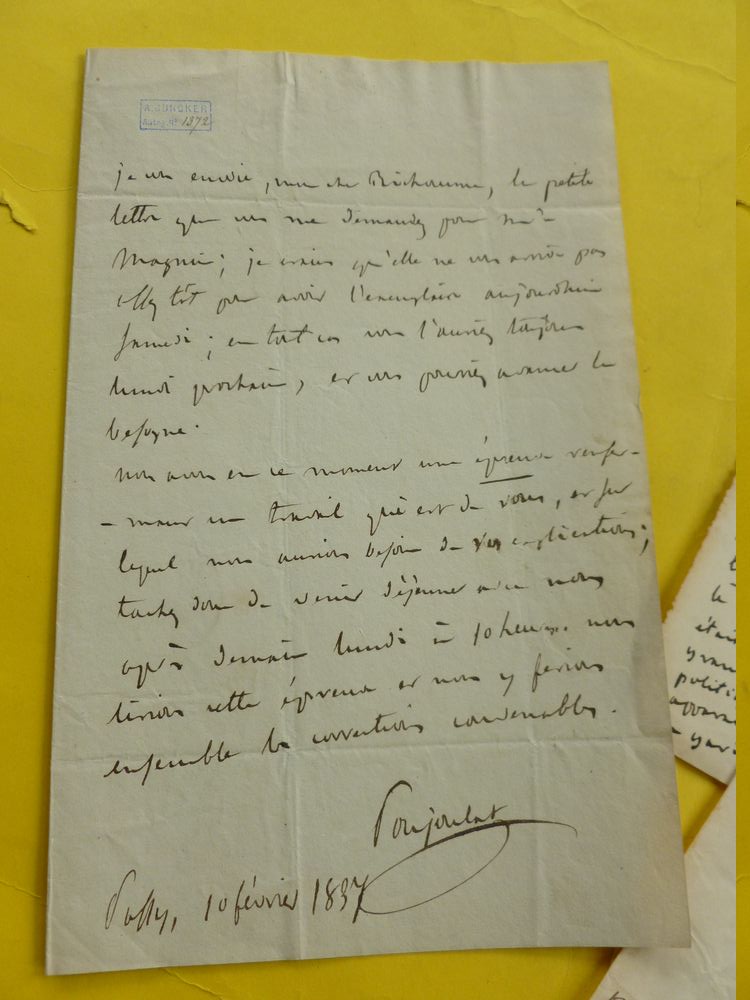 A. JUNCKER
Autog. N° 1372
je vous envoie, mon cher Richomme, la petite
lettre que vous me demandez pour md
Magnin; je crains qu'elle ne vous arrive pas
assez tôt pour avoir l'exemplaire aujourdhui
samedi; en tout cas vous l'auriez toujours
lundi prochain, et vous pourriez avancer la
besogne.
nous avons en ce moment une épreuve renfer-
-mant un travail qui est de vous, et sur
lequel nous aurions besoin de vos explications;
tachez donc de venir déjeuner avec nous
après demain lundi à 10 heures. nous
lirions cette épreuve et nous y ferions
ensemble les corrections convenables.
Poujoulat
Passy, 10 février 1837
était
politi